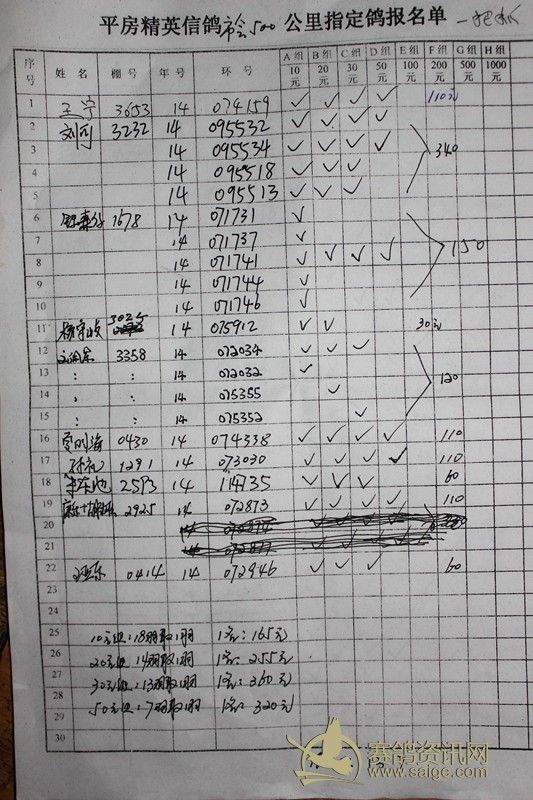 平房精英信鸽 500 公里指定鸽报名单
序号 姓名 棚号 年号 环号 A组10元 B组20元 C组30元 D组50元 E组100元 F组200元 G组500元 H组1000元
1 王宁 3653 14 074159 ✓ ✓ ✓ ✓ 110元
2 刘可 3232 14 095532 ✓ ✓ ✓ ✓
3 14 095534 ✓ ✓ ✓ ✓ 340
4 14 095518 ✓ ✓ ✓
5 14 095513 ✓ ✓ ✓
6 1678 14 071731 ✓
7 14 071737 ✓
8 14 071741 ✓ ✓ ✓ ✓ 150
9 14 071744 ✓
10 14 071746 ✓
11 3025 14 075912 ✓ ✓ 30元
12 3358 14 072034 ✓ ✓ ✓ ✓
13 : : 14 072032 ✓ 120
14 : : 14 075355 ✓
15 : : 14 075352 ✓
16 0430 14 074338 ✓ ✓ ✓ ✓ 110
17 孙礼 1291 14 073030 ✓ ✓ ✓ ✓ 110
18 2593 14 114735 ✓ ✓ ✓ 60
19 2925 14 072873 ✓ ✓ ✓ ✓ 110
20
21
22 0414 14 072946 ✓ ✓ ✓ 60
23
24
25 10元组:18羽取1羽 1名:165元
26 20元组:14羽取1羽 1名:255元
27 30元组:13羽取1羽 1名:360元
28 50元组:7羽取1羽 1名:320元
29
30
赛鸽资讯网
www.saige.com